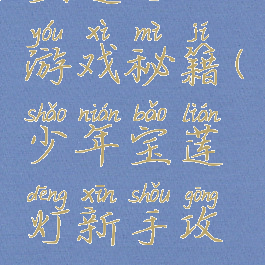 yóu xì mì jí
游戏秘籍(
shǎo nián bǎo lián
少年宝莲
dēng xīn shǒu gōng
灯新手攻